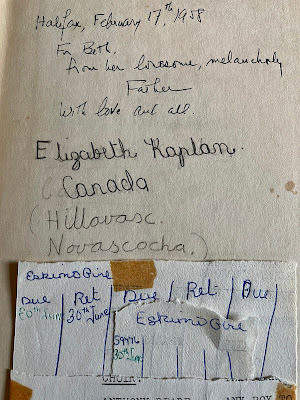 Halifax, February 17th, 1958
For Beth,
from her lonesome, melancholy
Father
With love and all.
Elizabeth Kaplan.
Canada
(Hillovasc.
Novascocha.)
Eskimo Girl
Due Ret Due Ret Due
30th June
Eskimo Girl
30th June
CHOIR.
ANTHONY BEARD ANY BOY TO